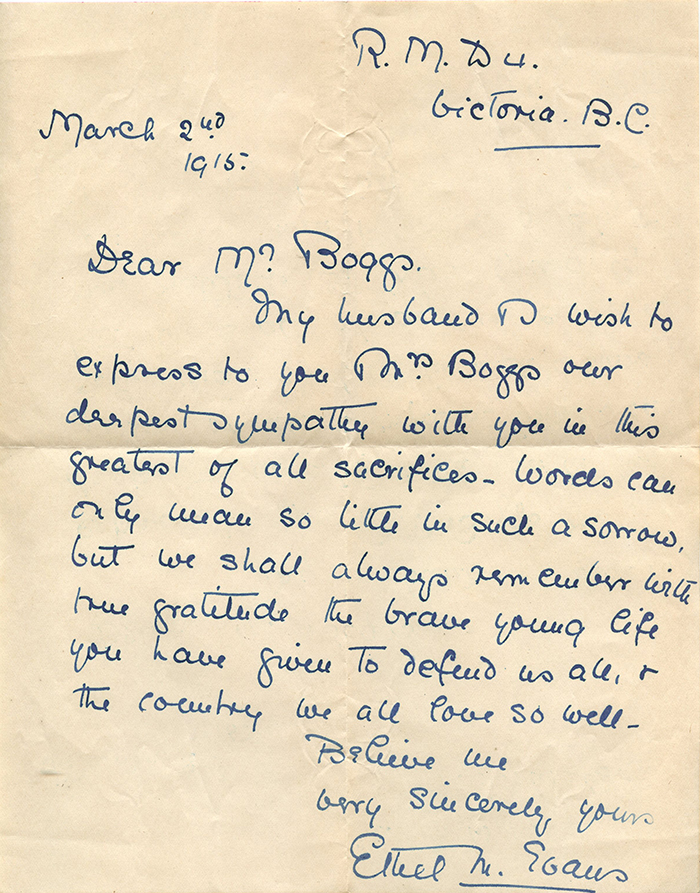 R. M. D 4.
Victoria. B.C.
March 2nd
1915.
Dear Mr Boggs.
My husband & I wish to
express to you & Mrs Boggs our
deepest sympathy with you in this
greatest of all sacrifices - words can
only mean so little in such a sorrow,
but we shall always remember with
true gratitude the brave young life
you have given to defend us all, &
the country we all love so well -
Believe me
very sincerely yours
Ethel M. Evans